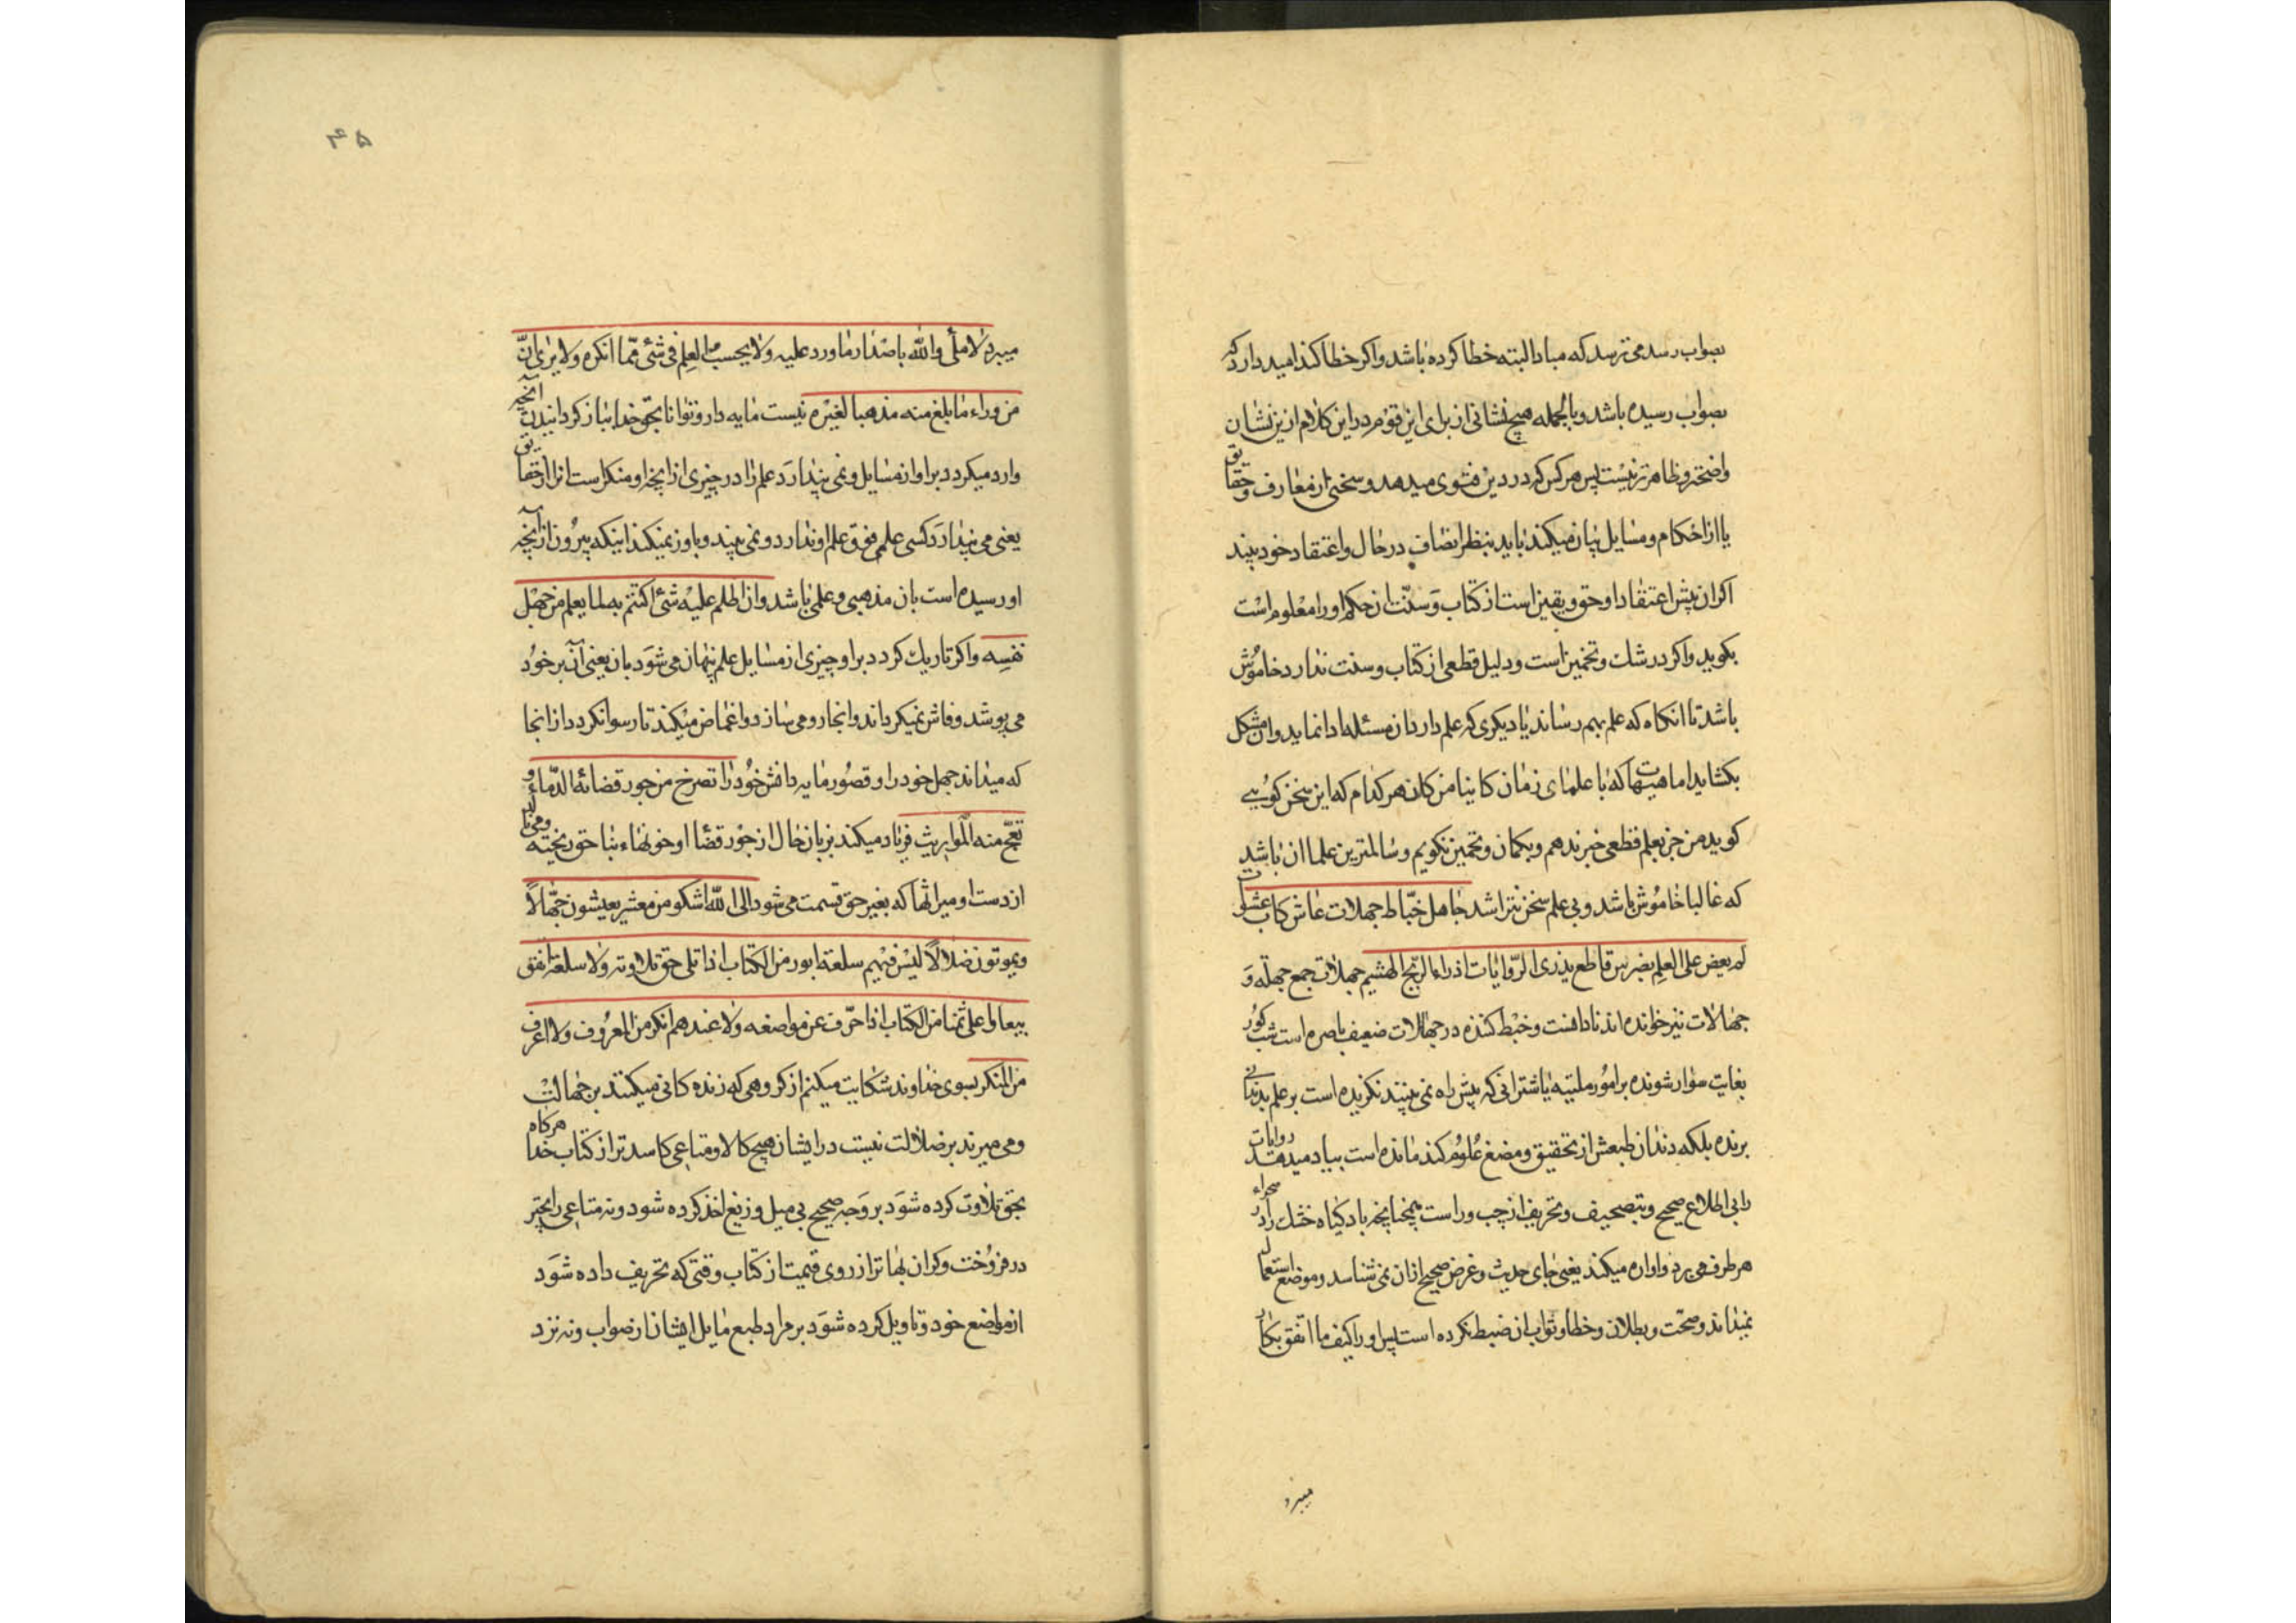 بصواب رسد می ترسد که مبادا البته خطا کرده باشد واکر خطا کند امید دارد که
بصواب رسیده باشد وبالجمله هیچ نشانی از برای این قوم در این کلام ازین نشان
واضحتر وظاهرتر نیست پس هرکس که در دین فتوی میدهد وسخنی از معارف وحقایق
یا از احکام ومسایل بیان میکند باید بنظر انصاف در حال واعتقاد خود بیند
اکر ان پیش اعتقاد او حق ویقین است از کتاب وَسنّت ان حکم او را معلوم است
بکوید واکر در شک وتخمین است ودلیل قطعی از کتاب وسنت ندارد خاموُش
باشد تا انکاه که علم بهم رساند یا دیکری که علم دارد ان مسئله ادا نماید وان مشکل
بکشاید اما هیهات که با علمای زمان کاینا من کان هر کدام که این سخن کوُیی
کوید من جز بعلم قطعی خبر ندهم وبکمان وتخمین نکویم وسٰالمترین علما ان باشد
که غالبا خاموُش باشد وبی علم سخن نتراشد جاهل خبّاط جهلات عاش رکّاب عشوات
لم یعض علی العلم بضرس قاطع یذری الرّوایٰات اذراء الرّیح الهشیم جهلات جمع جهلة وَ
جهٰالات نیز خوانده اند نادانست وخبْط کننده در جهالات ضعیف باصره است شب کوُر
بغایت سوٰار شونده بر اموُر ملتبه یا شترانی که پیش راه نمی بینند نکزیده است بر علم بدندانی
برنده بلکه دندان طبعش از تحقیق ومضغ عُلوُم کند مٰانده است بباد میدهد روایات
را بی اطلاع صحیح وبتصحیف وتحریف از چب وراست همچنانچه باد کیٰاه خشک را در صحراء
هر طرف می برد واواره میکند یعنی جٰای حدیث وغرض صحیح ازان نمی شناسد وموضع استعمال
نمیٰداند وصحّت وبطلان وخطا وثواب ان ضبط نکرده است پس او را کیف ما اتفق بکار
میبرد
۴۵
میبرد لا ملیٔ والله باصْدار مٰا ورد علیه ولا یحسب العِلم فی شیٔ ممّا انکره ولا یرٰی انّ
من وراء مٰا بلغ منه مذهبا لغیْره نیست مٰایه دار وتوٰانا بحق خدا بباز کردانیدن آنچه
وارد میکردد بر او از مسٰایل ونمی پندارَد علم رٰا در چیزی از انچه او منکر است انرا از حقایق
یعنی می پندٰارَد کسی علمی فوق علم او ندارد ونمی بیند وباور نمیکند اینکه بیروُن از آنچه
او رسیده است بان مذهبی وعلمی باشد وان اظلم علیْه شیٔ اکتتم به لما یعلم من جهْل
نفسِه واکر تاریک کردد بر او چیزی از مسٰایل علم پنهان می شوَد بان یعنی آن بر خوُد
می پوشد وفاش نمیکرداند وانجا رو می سٰازد واغمٰاض میٰکند تا رسوا نکردد از انجا
که میٰداند جهل خود را وقصوُر مٰایه دانش خوُد رٰا تصرخ من جور قضائه الدّماء و
تعجّ منه الْمواریث فریٰاد میکند بزبان حٰال از جوْر قضٰا او خونهٰاء بنٰاحق ریخته ومی نالد
از دست او میراثهٰا که بغیر حق قسمت می شود الی الله اشکو من معشر یعیشون جهّالًا
ویموتون ضلالًا لیْس فیهم سلعة ابور من الکتٰاب اذا تلی حق تلاوته ولا سلعة انفق
بیعا ولا اعلی ثمنا من الکتاب اذا حرّف عن مواضعه ولٰا عندهم انکر من المعروُف ولا اعرف
من المنکر بسوی خداوند شکٰایت میکنم از کروهی که زنده کانی میکنند بر جهٰالتْ
ومی میرند بر ضلالت نیست در ایشان هیچ کالا ومتٰاعی کاسد تر از کتاب خدا هرکاه
بحق تلٰاوت کرده شوَد بر وَجه صحیح بی میل وزیغ اخذ کرده شود ونه متاعی رایجتر
در فروُخت وکران بهٰاتر از روی قیمت از کتاب وقتی که تحریف داده شوَد
از موٰاضع خود وتاویل کرده شوَد بر مراد طبع مٰایل ایشان از صواب ونه نزد